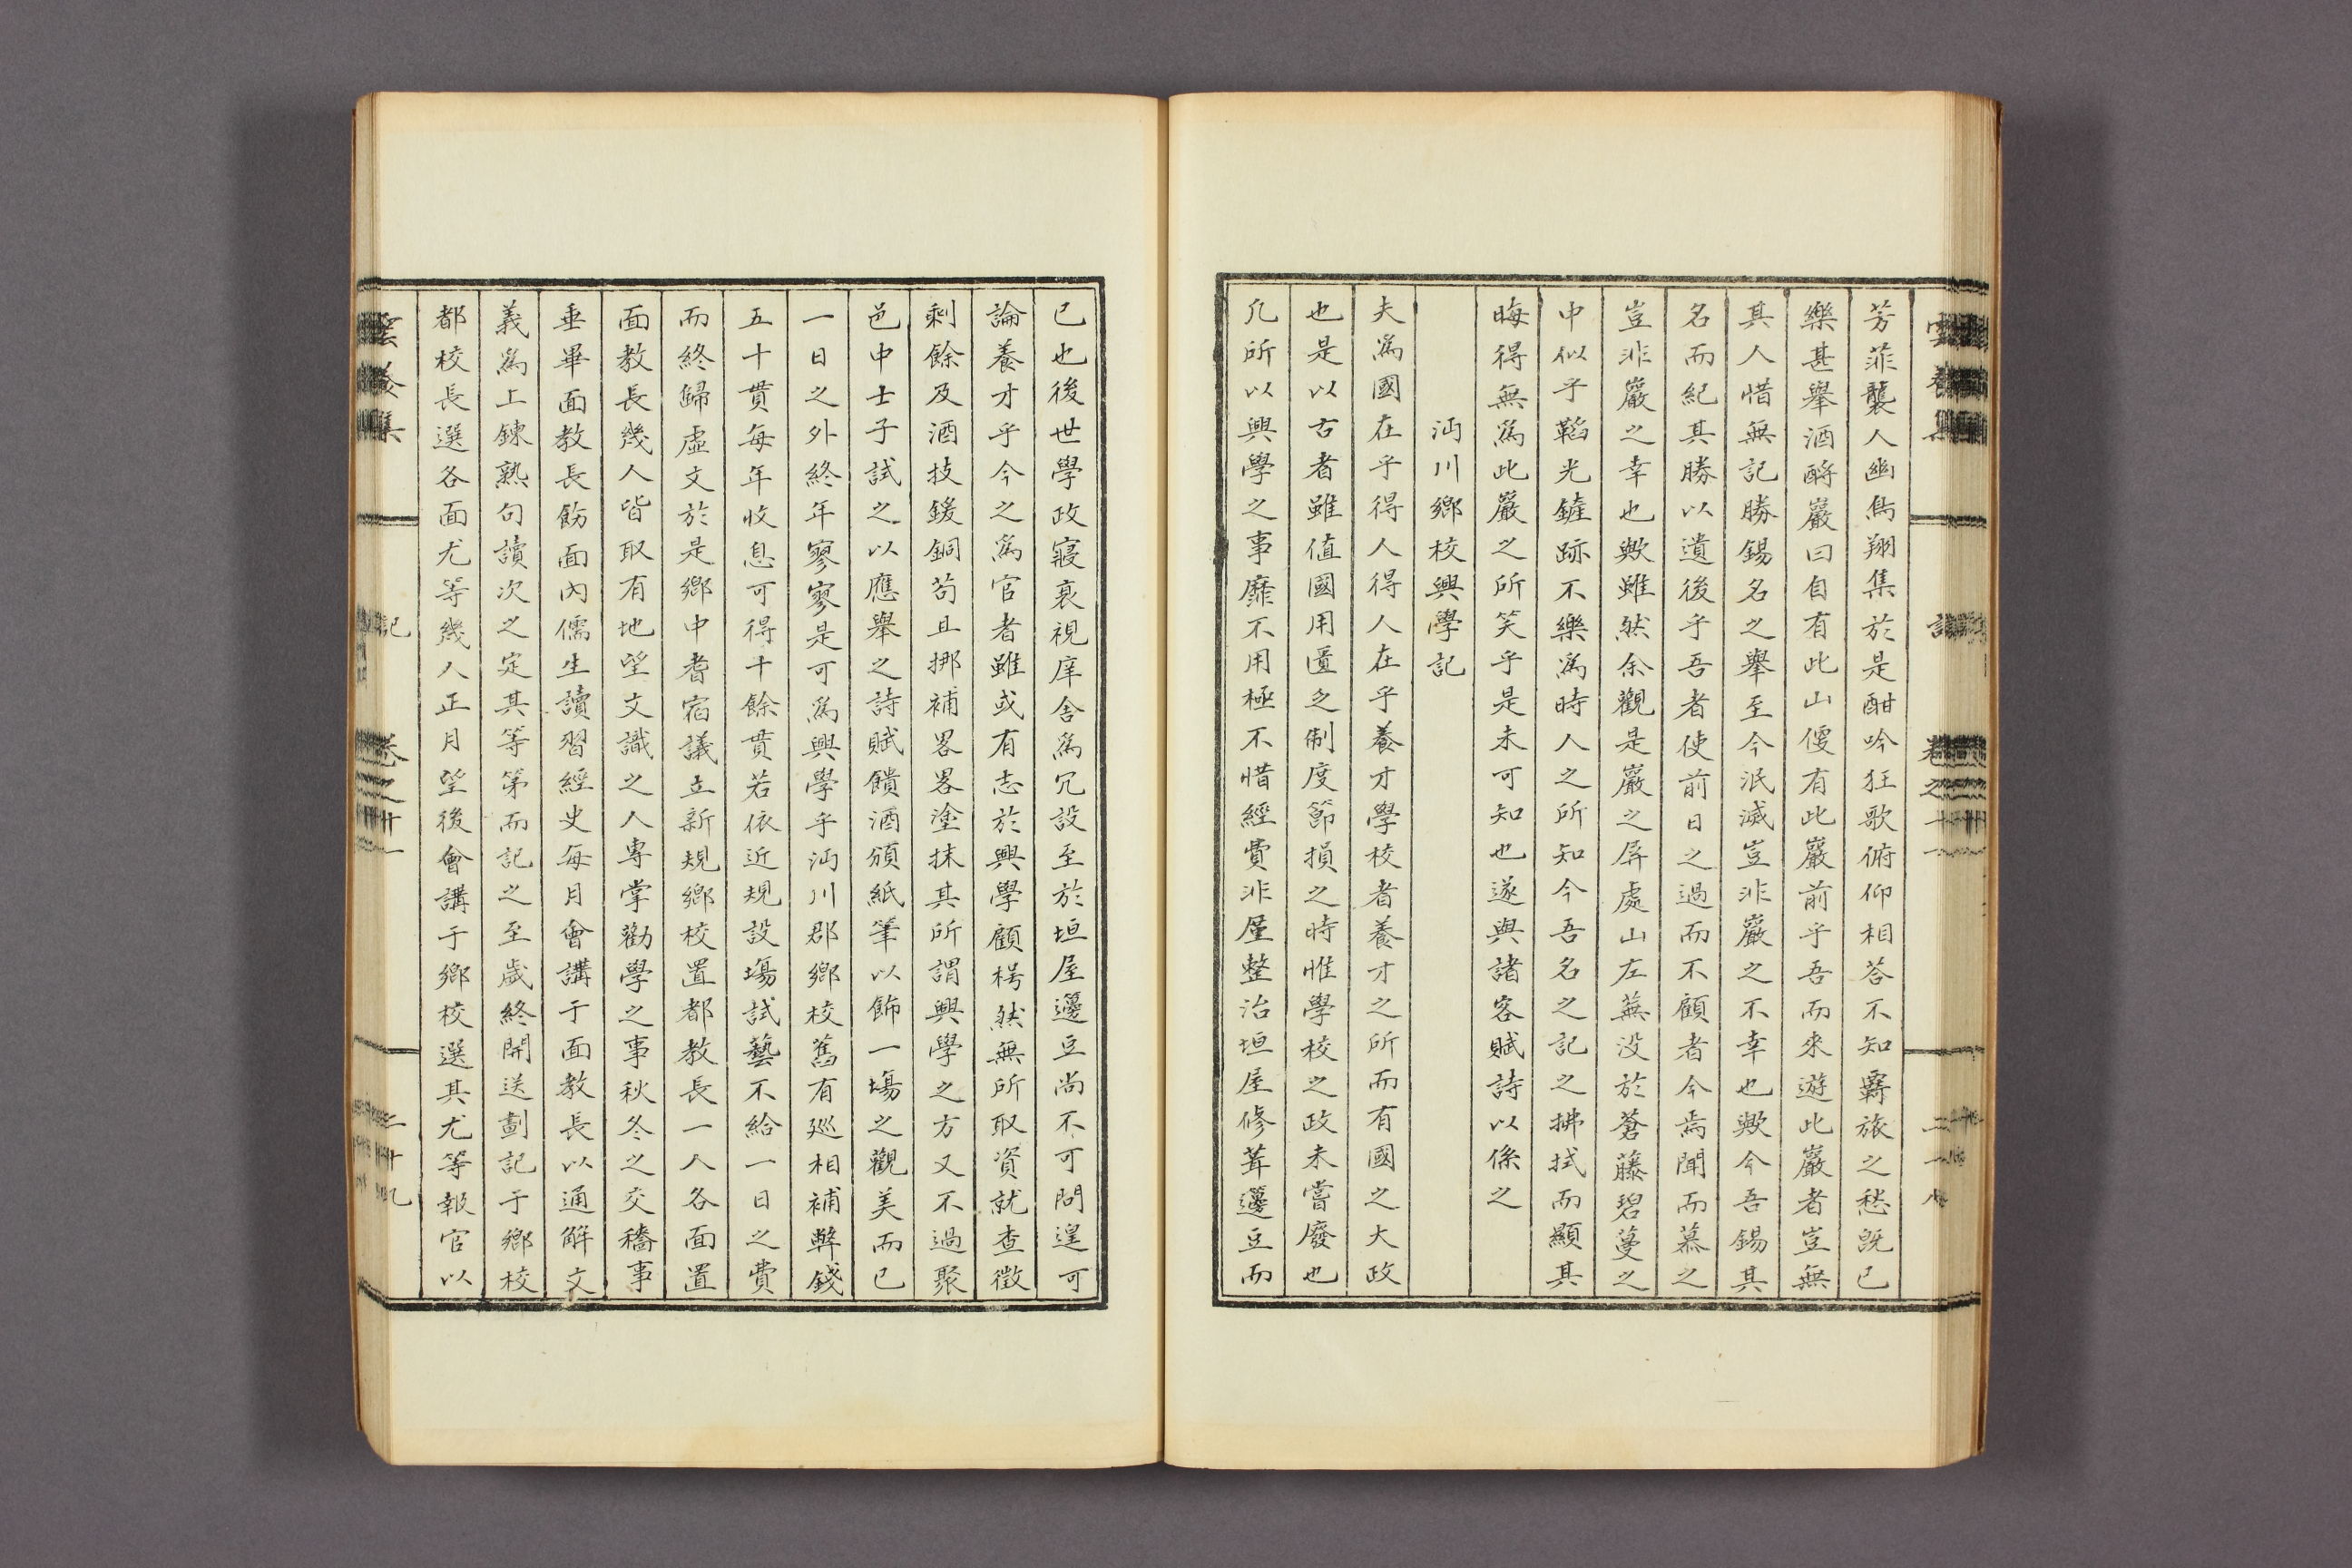 芳菲襲人幽鳥翔集於是酣吟狂歌俯仰相答不知羇旅之愁旣已
樂甚舉酒酹巖曰自有此山便有此巖前乎吾而來遊此巖者豈無
其人惜無記勝錫名之擧至今泯滅豈非巖之不幸也歟今吾錫其
名而紀其勝以遺後乎吾者使前日之過而不顧者今焉聞而慕之
豈非巖之幸也歟雖然余觀是巖之屛處山左蕪没於蒼藤碧蔓之
中似乎韜光鏟跡不樂爲時人之所知今吾名之記之拂拭而顯其
晦得無爲此巖之所笑乎是未可知也遂與諸客賦詩以係之
沔川鄕校興學記
夫爲國在乎得人得人在乎養才學校者養才之所而有國之大政
也是以古者雖値國用匱乏制度節損之時惟學校之政未嘗廢也
凡所以興學之事靡不用極不惜經費非屋整治垣屋修葺邊豆而
已也後世學政寢衰視庠舍爲冗設至於垣屋邊豆尚不可問遑可
論養才乎今之爲官者雖或有志於興學顧枵然無所取資就查徵
剩餘及酒技鍰銅苟且挪補畧畧塗抹其所謂興學之方又不過聚
邑中士子試之以應舉之詩賦饋酒頒紙筆以飾一塲之觀美而已
一日之外終年寥寥是可爲興學乎沔川郡鄕校舊有廵相補弊錢
五十貫每年收息可得十餘貫若依近規設塲試藝不給一日之費
而終歸虛文於是鄕中耆宿議立新規鄕校置都教長一人各面置
面教長幾人皆取有地望文識之人專掌勸學之事秋冬之交穡事
垂畢面教長飭面內儒生讀習經史每月會講于面教長以通解文
義爲上鍊熟句讀次之定其等第而記之至歲終開送劃記于鄕校
都校長選各面尤等幾人正月望後會講于鄕校選其尤等報官以
記
二十九